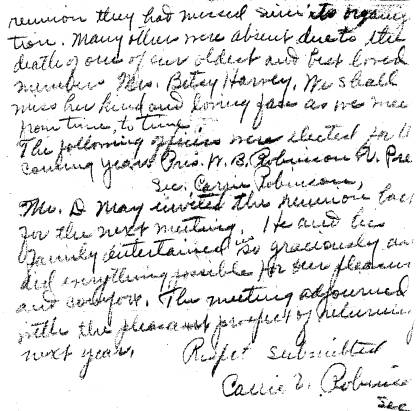 reunion they had missed since its organiza
tion. Many others were absent due to the
death of one of our oldest and best loved
members Mrs. Betsy Harvey. We shall
miss her kind and loving face as we mee
from time, to time.
The following officers were elected for th
coming year. Pres. W. B. Robinson V. Pre
Sec. Carrie Robinson,
Mr. D May invited the reunion back
for the next meeting. He and his
family entertained so graciously and
did everything possible for our pleasure
and comfort. The meeting adjourned
with the pleasant prospect of returning
next year. Respet submitted
Carrie E. Robinso
Sec